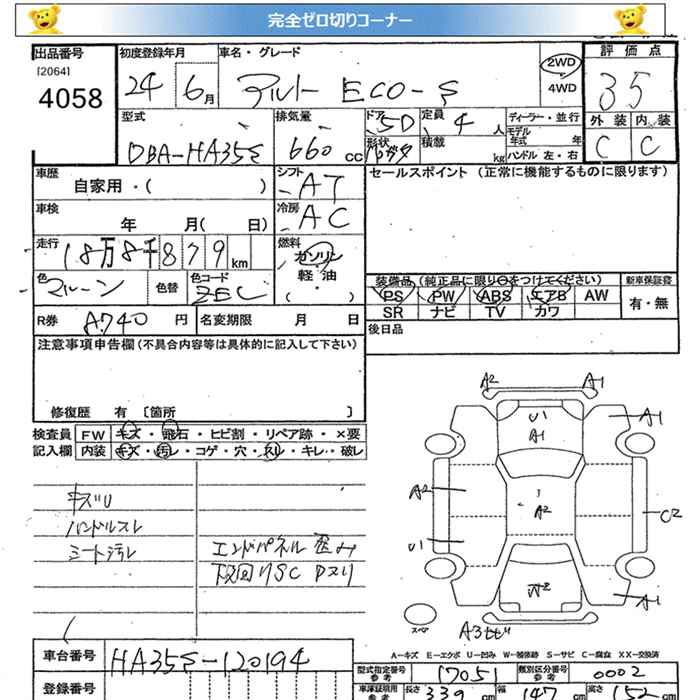 完全ゼロ切りコーナー
出品番号
[2064]
4058
初度登録年月
24 6月
車名・グレード
アルト ECO-S
2WD
4WD
評価点
3.5
型式
DBA-HA35S
排気量
660 cc
ドア 5D
形状
定員 4 人
積載 kg
ディーラー・並行
モデル年式 年
ハンドル 左・右
外装 内装
C C
車歴
自家用・( )
シフト AT
セールスポイント (正常に機能するものに限ります)
車検
年 月( 日)
冷房 AC
走行
18万8千879km
燃料
ガソリン
軽油
( ・ )
色 マルーン
色替
色コード ZEC
装備品 (純正品に限り○をつけてください)
新車保証書
PS PW ABS エアB AW
SR ナビ TV カワ
有・無
R券 A740 円
名変期限 月 日
後日品
注意事項申告欄(不具合内容等は具体的に記入して下さい)
修復歴 有 〔箇所 〕
検査員記入欄
FW キズ・飛石・ヒビ割・リペア跡・×要
内装 キズ・汚レ・コゲ・穴・スレ・キレ・破レ
キズU
ハンドルスレ
シート汚レ
エンドパネル歪み
下回りSC Pズリ
A2 A1
U1
A1
A1
A2
A2
C2
U1
A2
A1
スペア
A3ヒビ
A-キズ E-エクボ U-凹み W-補修跡 S-サビ C-腐食 XX-交換済
車台番号
HA35S-120194
登録番号
型式指定番号 参考 17051
類別区分番号 参考 0002
車庫証明用 参考 長さ 339 cm 幅 147 cm 高さ 152 cm